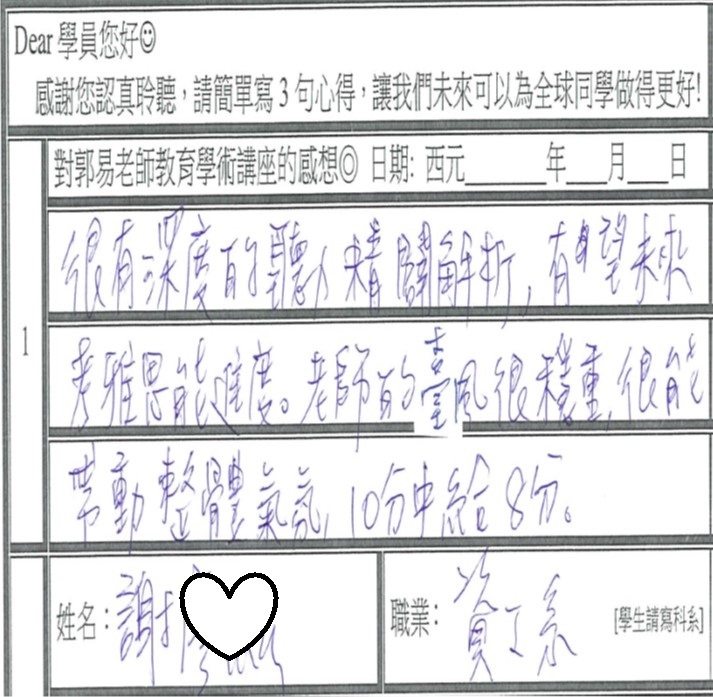 Dear 學員您好☺
感謝您認真聆聽，請簡單寫 3 句心得，讓我們未來可以為全球同學做得更好!
1
對郭易老師教育學術講座的感想◎ 日期: 西元______年___月___日
很有深度的聽力精闢解析，有望未來
考雅思能進度。老師的臺風很穩重，很能
帶動整體氣氛，10分中給8分。
姓名：謝
職業：資工系 [學生請寫科系]